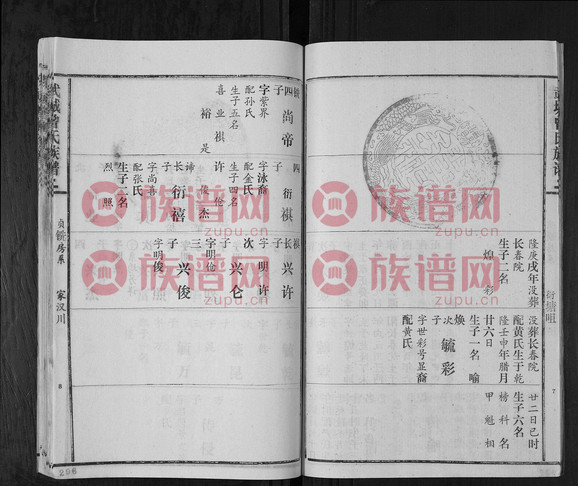 武城曾氏族谱
隆庚戌年没葬
长春院
生子二名
煌 彩
没葬长春院
配黄氏生于乾
隆壬申年腊月
廿六日
生子一名 喻
焕
次 毓彩
子
字世彩号显裔
配黄氏
廿二日巳时
生子六名
榜 科 名
甲 魁 相
7
四 尚帝
子
字紫界
配孙氏
生子五名
喜 业 祺 裕 是
四 衍祺
子
字泳裔
配金氏
生子四名
许 杰
长 衍禧
子
字尚喜
配张氏
生子二名
烈 照
长 兴许
子
字明许
次 兴仑
子
字明伦
三 兴俊
子
字明俊
武城曾氏族谱
贞 房系
家汉川
8
226
族谱网
zupu.cn
族谱网
zupu.cn
族谱网
zupu.cn
族谱网
zupu.cn